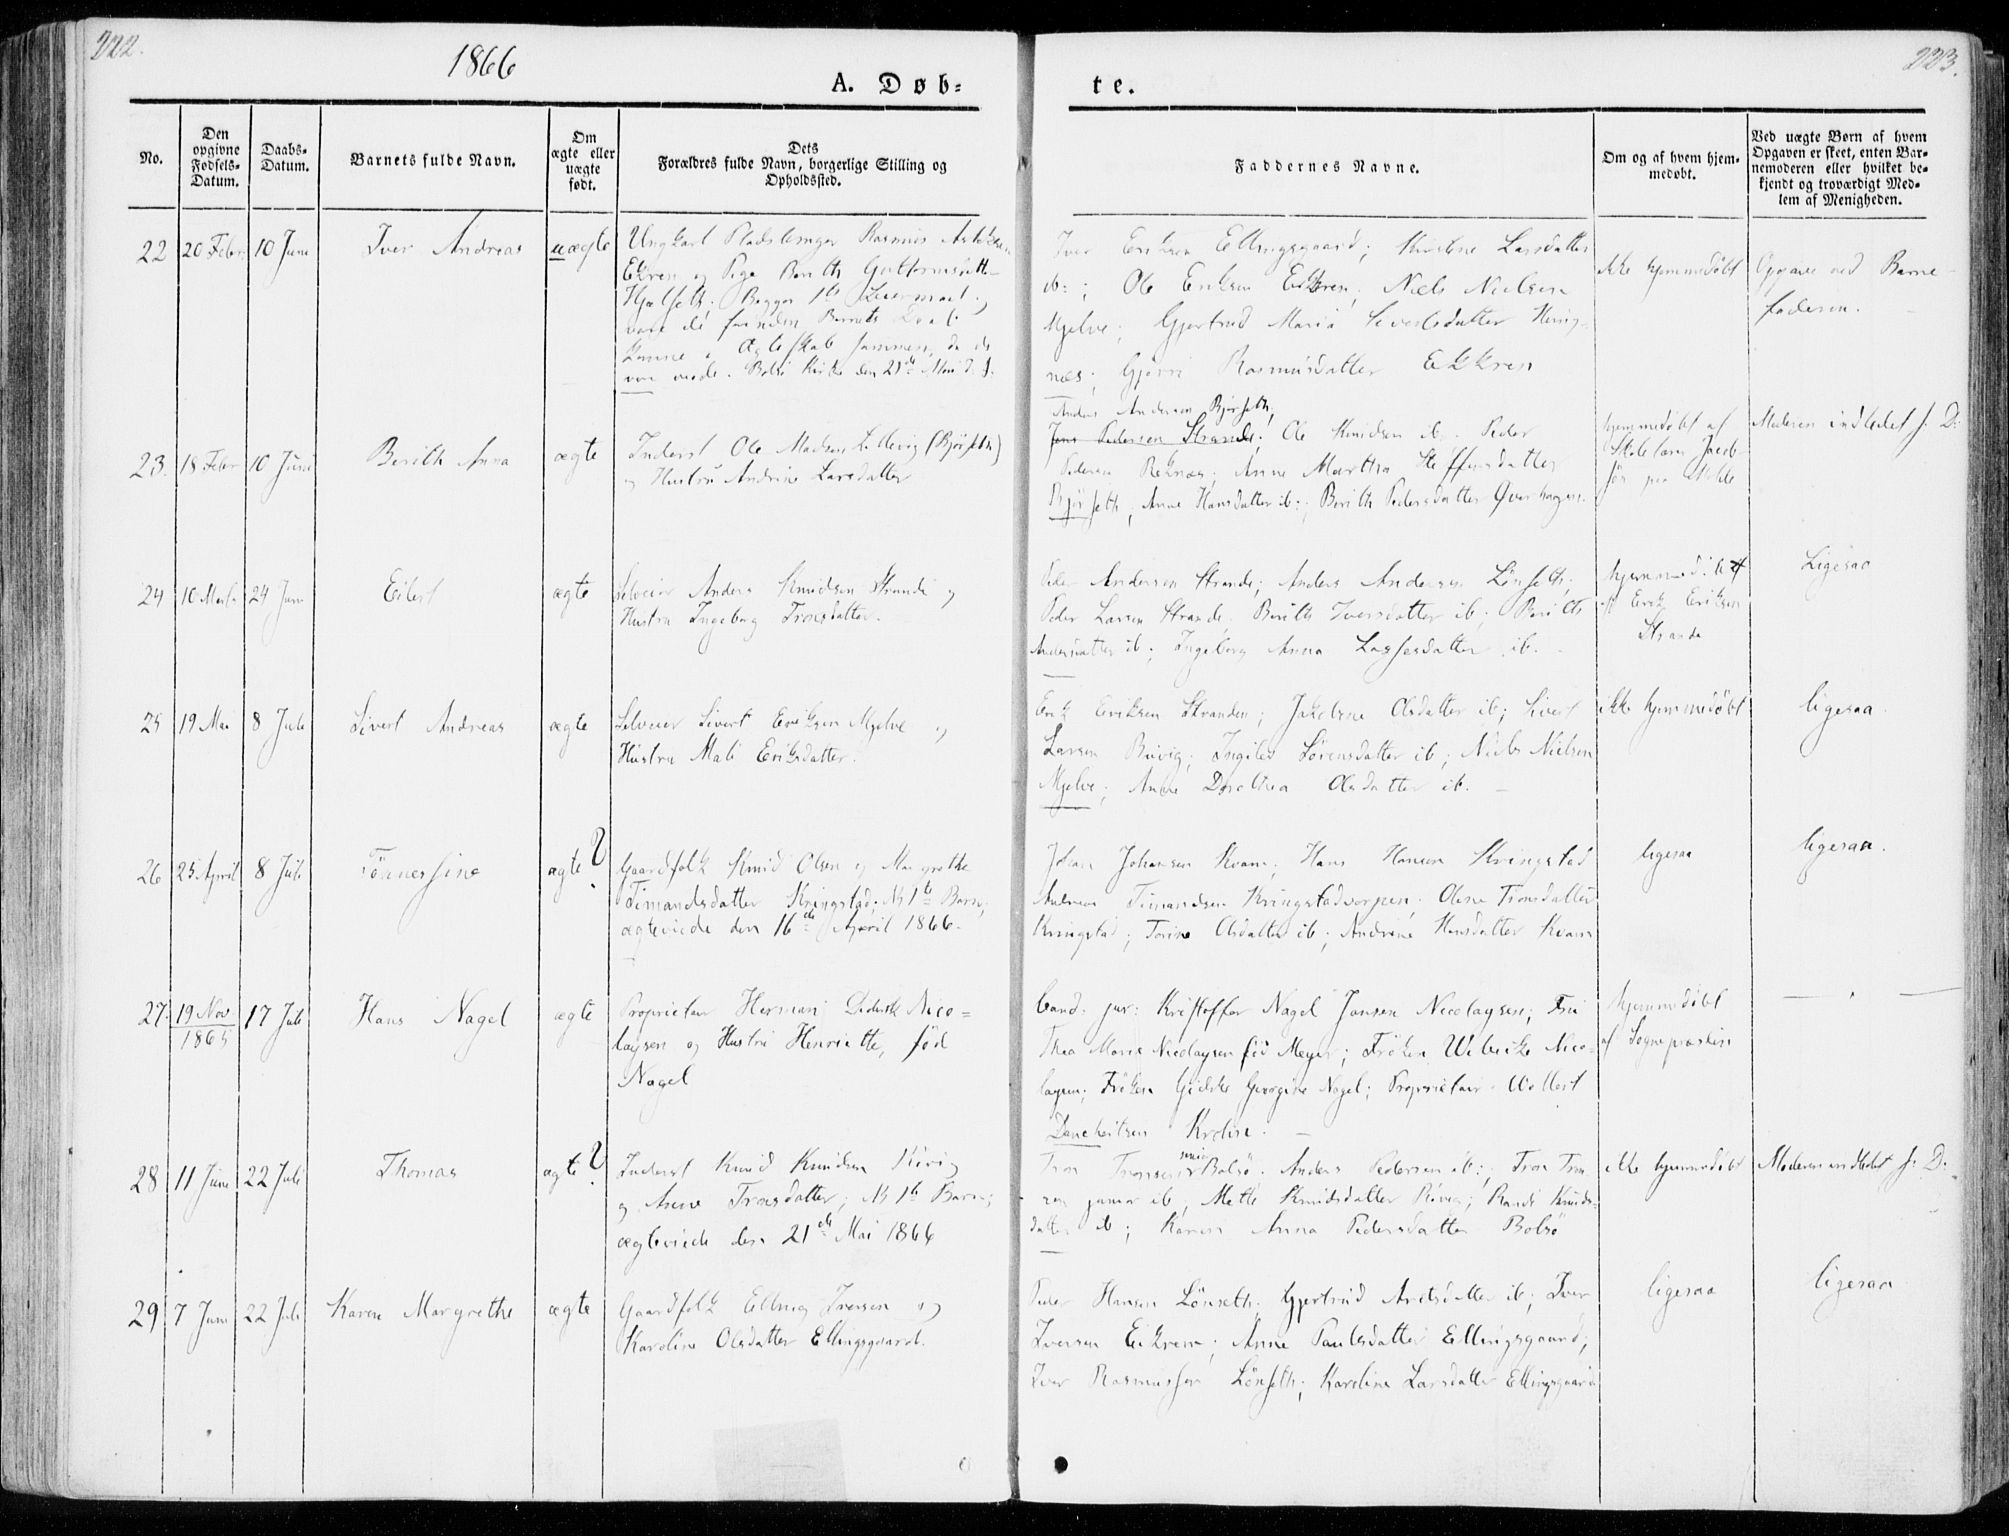 222.
1866
A. Døb=
No.
Den opgivne Fødsels-Datum.
Daabs-Datum.
Barnets fulde Navn.
Om ægte eller uægte født.
Dets
Forældres fulde Navn, borgerlige Stilling og
Opholdssted.
22
20 Febr
10 Juni
Iver Andreas
uægte
Ungkarl Rasmus
og Pige Berith Guttormsdatter
Begges 1ste Leiermaal
vare de Barnets Daab
komne i Ægteskab sammen, da de
Bolsø Kirke den 21de Mai d. A.
23.
18 Febr
10 Juni
Berith Anna
ægte
Inderst Ole Madsen Lillevig (Bjørseth)
og Hustru Andrine Larsdatter
24
10 Marts
24 Juni
Eilert
ægte
Selveier Anders Knudsen Strande og
Hustru Ingeborg Tronsdatter.
25
19 Mai
8 Juli
Sivert Andreas
ægte
Selveier Sivert Eriksen Mjelve og
Hustru Mali Eriksdatter.
26
25 April
8 Juli
Tønnesine
ægte ?
Gaardfolk Knud Olsen og Margrethe
Timandsdatter Kringstad; NB 1ste Barn;
ægteviede den 16de April 1866.
27.
19 Nov
1865
17 Juli
Hans Nagel
ægte
Proprietær Herman Diderik Nico=
laysen og Hustru Henriette, fød
Nagel
28
11 Juni
22 Juli
Thomas
ægte ?
Inderst Knud Knudsen Røvig
og Anne Tronsdatter; NB 1ste Barn;
ægteviede den 21de Mai 1866
29
7 Juni
22 Juli
Karen Margrethe
ægte
Gaardfolk Elling Iversen og
Karoline Olsdatter Ellingsgaard.
223.
te.
Faddernes Navne.
Om og af hvem hjem-
medøbt.
Ved uægte Børn af hvem
Opgaven er skeet, enten Bar-
nemoderen eller hvilket be-
kjendt og troværdigt Med-
lem af Menigheden.
Iver Eriksen Ellingsgaard; Larsdatter
ib:; Ole Eriksen Eikrem; Niels Nielsen
Mjelve; Gjertrud Maria Sivertsdatter
næs; Gjøri Rasmusdatter Eikrem
ikke hjemmedøbt
Opgave ved Barne-
faderen.
Anders Andersen Bjørseth;
Jens Pedersen Strande; Ole Knudsen ib; Peder
Pedersen Reknæs; Anne Martha Steffensdatter
Bjørseth; Anne Hansdatter ib:; Berith Pedersdatter Øverhagen
hjemmedøbt af
Skolelærer Jacob-
sen paa Molde
Moderen indledet s: D:
Peder Andersen Strande; Anders Andersen Lønseth;
Peder Larsen Strande; Berith Iversdatter ib; Berith
Andersdatter ib; Ingeborg Anna Lassesdatter ib.
hjemmedøbt
af Erik Eriksen
Strande
Ligesaa
Erik Eriksen Stranden; Jakobine Olsdatter ib; Sivert
Larsen; Ingileo Sørensdatter ib; Niels Nielsen
Mjelve; Anne Dorothea Olsdatter ib.
ikke hjemmedøbt
ligesaa.
Johan Johansen Kvam; Hans Hansen Kringstad
Andreas Timandsen; Olene Tronsdatter
Kringstad; Torine Olsdatter ib; Andrine Hansdatter Kvam
ligesaa
ligesaa.
Cand: jur: Kristoffer Nagel Jansen Nicolaysen; Fru
Thea Marie Nicolaysen fød Meyer; Frøken Wibecke Nico=
laysen; Frøken Gidske Georgine Nagel; Proprietær Wollert
Danckertsen Krohn.
hjemmedøbt
af Sognepræsten
Tron Tronsen senior Bolsø; Anders Pedersen ib:; Tron Tron
sen junior ib; Mette Knudsdatter Røvig; Randi Knuds-
datter ib; Karen Anna Pedersdatter Bolsø
ikke hjemmedøbt
Moderen indledet s: D:
Peder Hansen Lønseth; Gjertrud ib; Iver
Iversen Eikrem; Anne Paulsdatter Ellingsgaard;
Iver Rasmussen Lønseth; Karoline Larsdatter Ellingsgaard
ligesaa
ligesaa